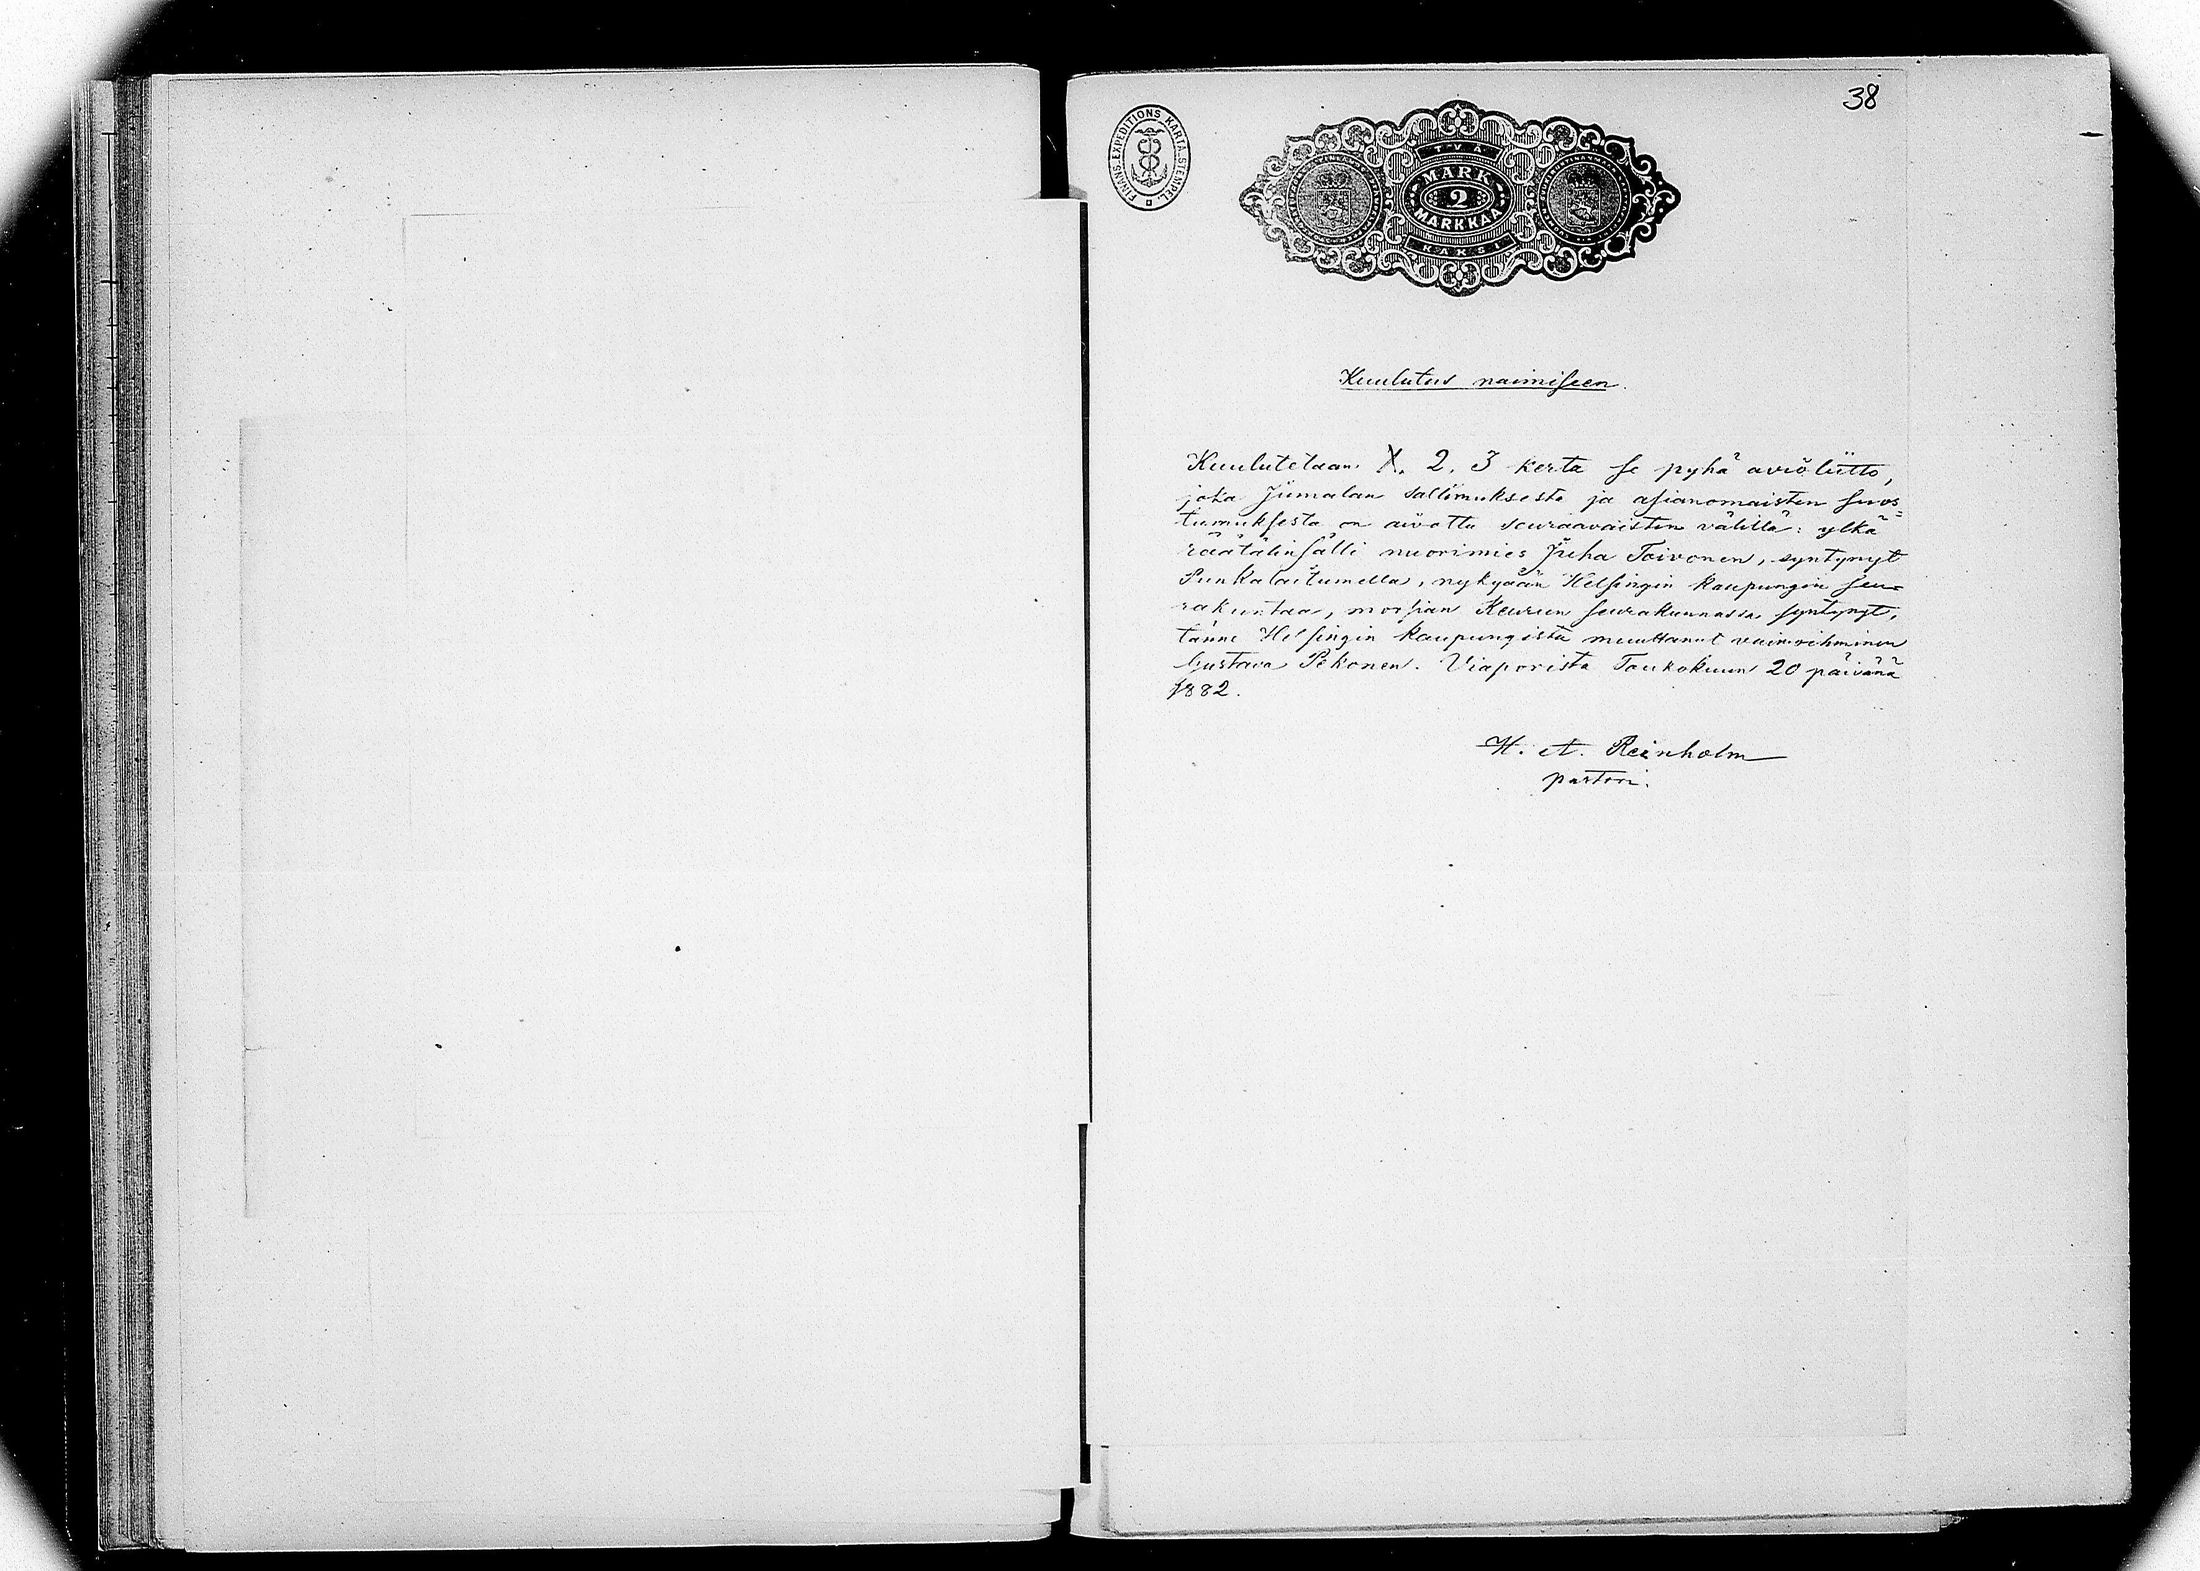 38
FINANS.EXPEDITIONS KARTA.STEMPEL.
TVÅ
MARK
2
MARKKAA
KAKSI
Kuulutus naimiseen.
Kuulutetaan 1. 2. 3 kerta se pyhä avioliitto,
joka Jumalan sallimuksesta ja asianomaisten suos=
tumuksesta on aivottu seuraavaisten välillä: ylkä
räätälinsälli nuorimies Juha Toivonen, syntynyt
Punkalaitumella, nykyään Helsingin kaupungin seu=
rakuntaa, morsian Keurun seurakunnassa syntynyt,
tänne Helsingin kaupungista muuttanut vaimoihminen
Gustava Pekonen. Viaporista Toukokuun 20 päivänä
1882.
H. A. Reinholm
pastori.